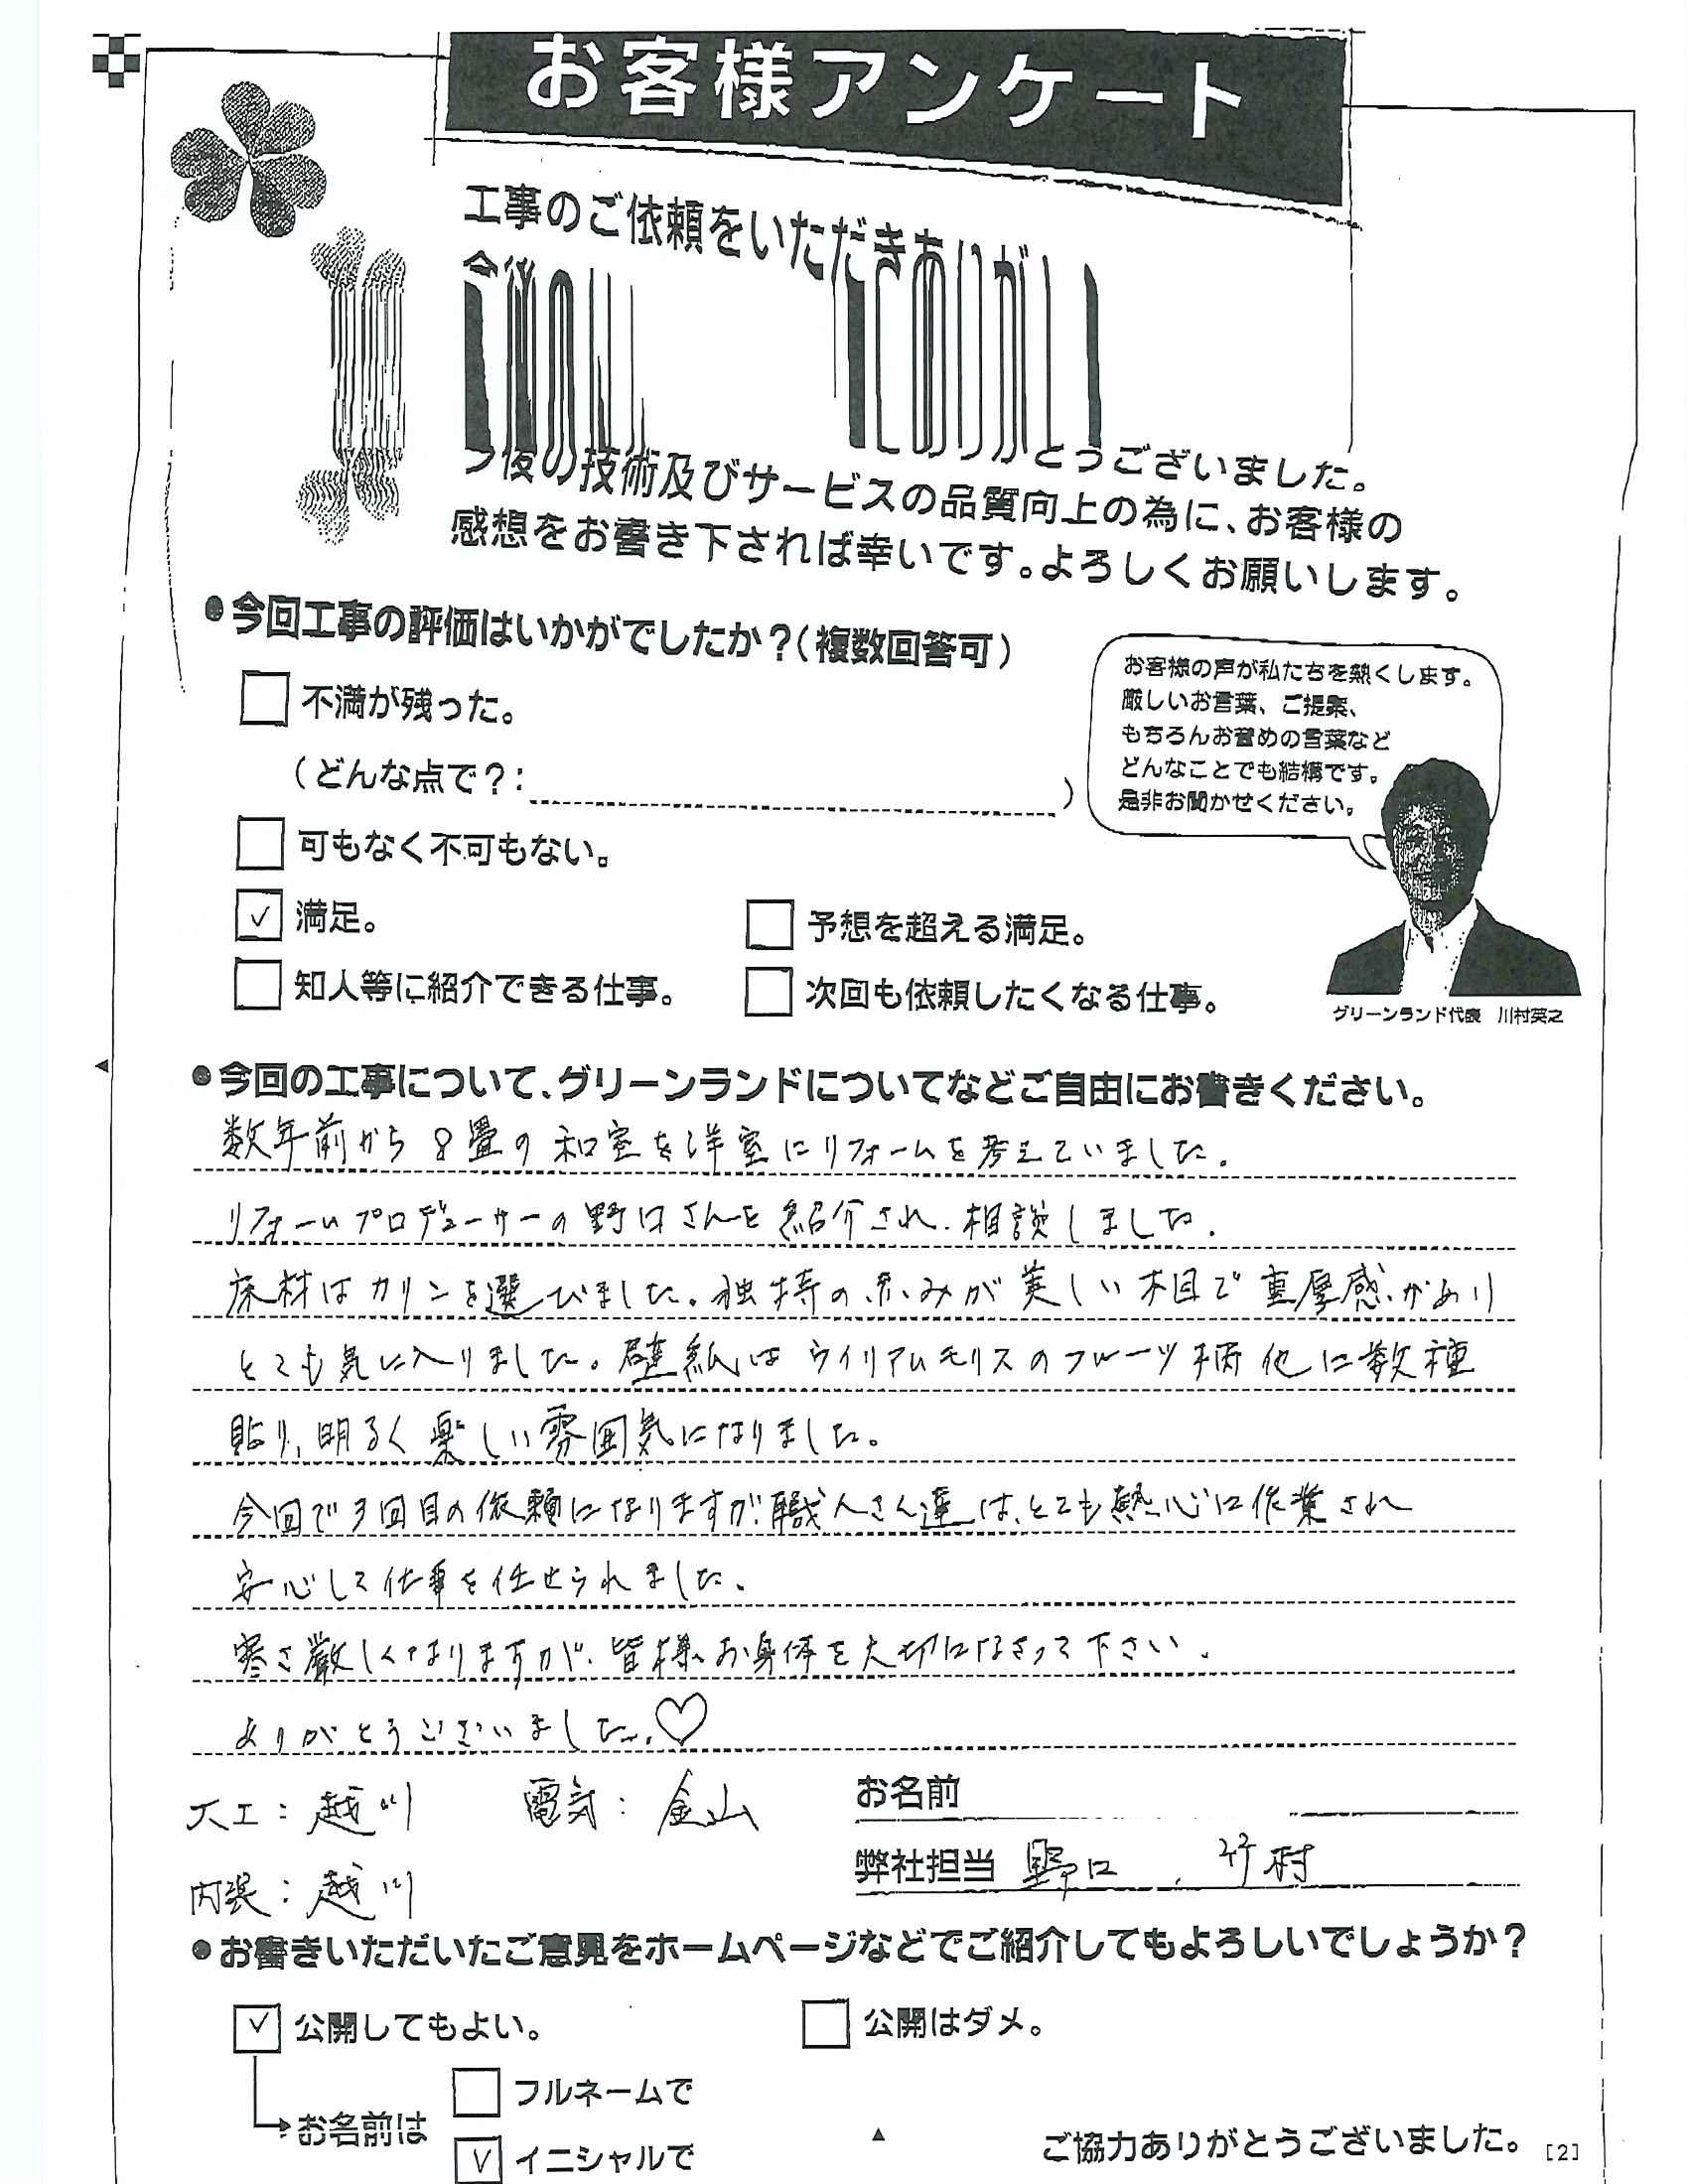 お客様アンケート
工事のご依頼をいただきありがとうございました。
今後の技術及びサービスの品質向上の為に、お客様の
感想をお書き下されば幸いです。よろしくお願いします。
●今回工事の評価はいかがでしたか？(複数回答可)
不満が残った。
(どんな点で？: )
可もなく不可もない。
✓ 満足。
予想を超える満足。
知人等に紹介できる仕事。
次回も依頼したくなる仕事。
お客様の声が私たちを熱くします。
厳しいお言葉、ご提案、
もちろんお誉めの言葉など
どんなことでも結構です。
是非お聞かせください。
グリーンランド代表 川村英之
●今回の工事について、グリーンランドについてなどご自由にお書きください。
数年前から8畳の和室を洋室にリフォームを考えていました。
リフォームプロデューサーの野口さんを紹介され、相談しました。
床材はカリンを選びました。独特の赤みが美しい木目で重厚感があり
とても気に入りました。壁紙はウイリアムモリスのフルーツ柄他に数種
貼り、明るく楽しい雰囲気になりました。
今回で3回目の依頼になりますが、職人さん達は、とても熱心に作業され
安心して仕事を任せられました。
寒さ厳しくなりますが、皆様お身体を大切になさって下さい。
ありがとうございました。♡
大工：越川 電気：金山
内装：越川
お名前
弊社担当 野口、竹村
●お書きいただいたご意見をホームページなどでご紹介してもよろしいでしょうか？
✓ 公開してもよい。
公開はダメ。
お名前は
フルネームで
✓ イニシャルで
ご協力ありがとうございました。
[2]